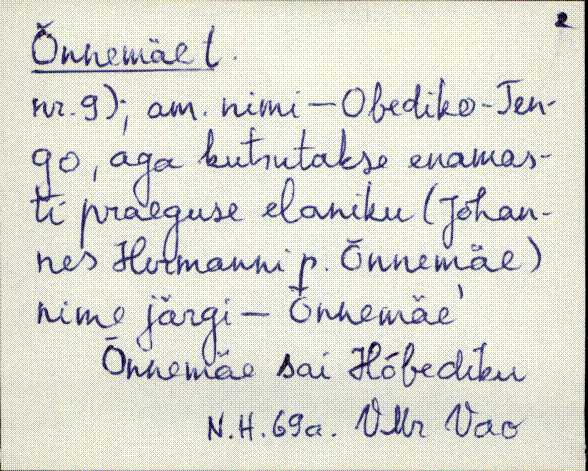 2
Õnnemäe t.
nr. 9); am. nimi — Obediko-Jen-
go, aga kutsutakse enamas-
ti praeguse elaniku (Johan-
nes Hermanni p. Õnnemäe)
nime järgi — Õnnemäe'
Õnnemäe sai Hõbediku
N.H. 69a. VMr Vao